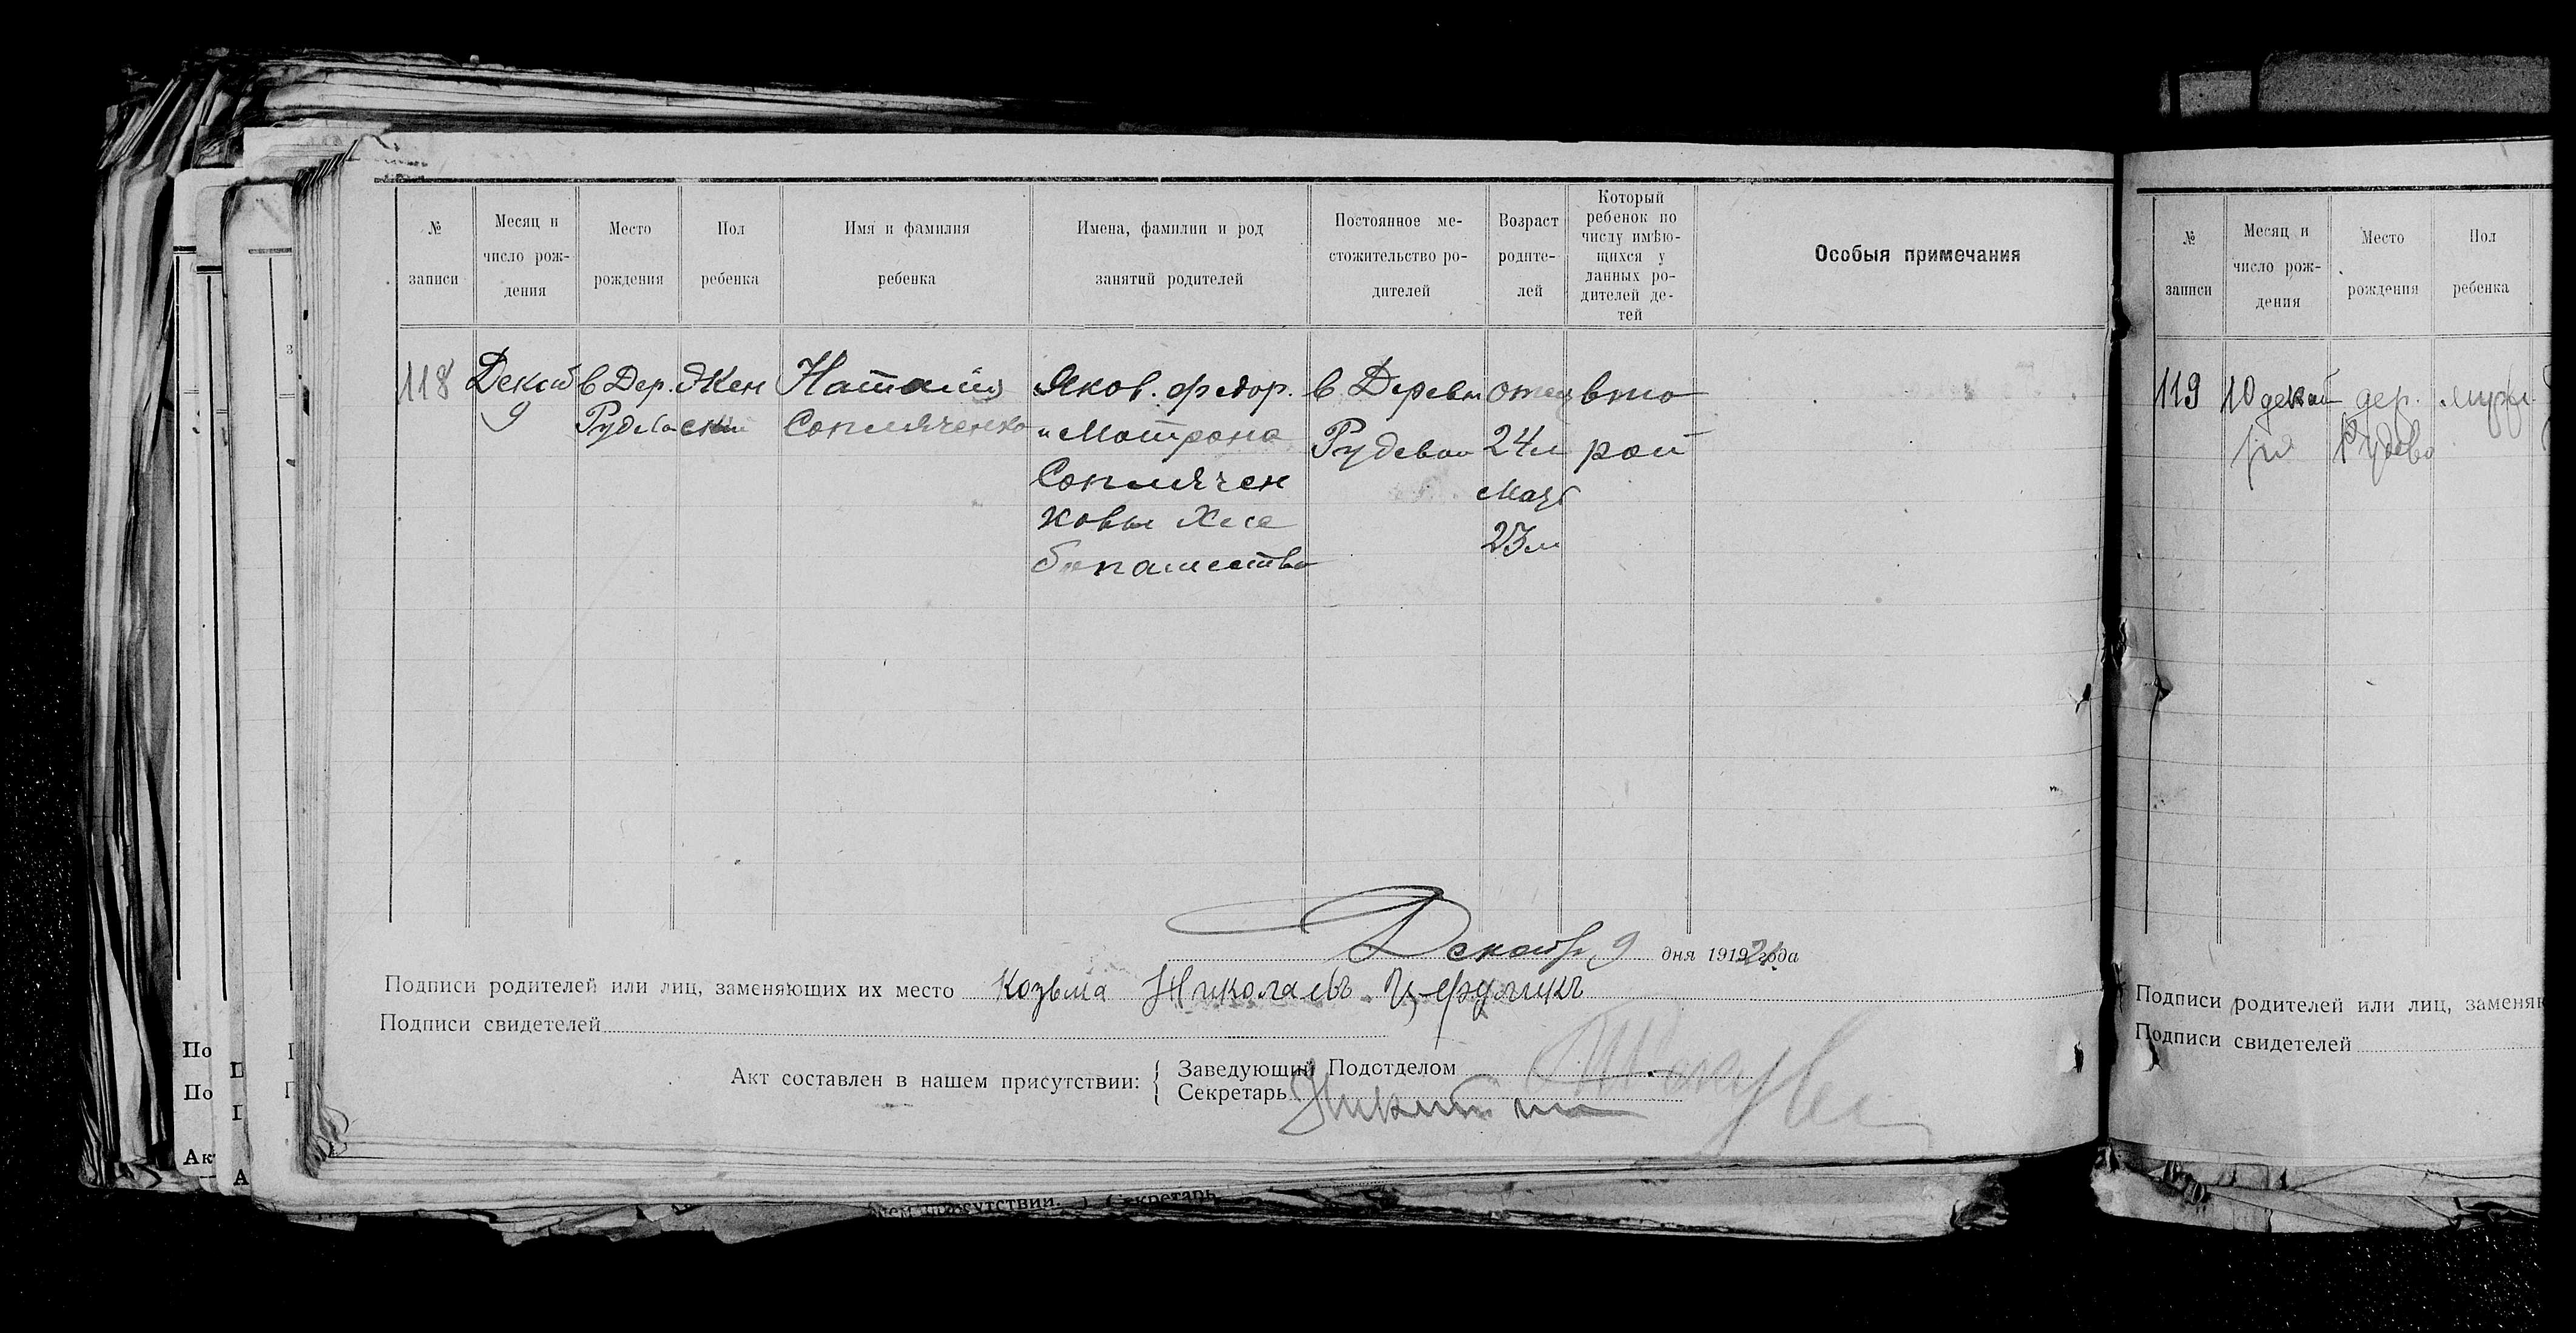 № записи
Месяц и число рож-дения
Место рождения
Пол ребенка
Имя и фамилия ребенка
Имена, фамилии и род занятий родителей
Постоянное ме-стожительство ро-дителей
Возраст родите-лей
Который ребенок по числу имѣю-щихся у данных ро-дителей де-тей
Особыя примечания
118
Декаб
9
в Дер.
Рудева
Жен
ский
Наталия
Сопляченко
Яков. федор.
и Матрона
Соплячен
ковы Хле
бопашество
в Деревн
Рудевой
отец
24 л
Мат
23 л
вто
рой
Декабр 9 дня 191921 года
Подписи родителей или лиц, заменяющих их место Козьма Николаевъ
Подписи свидетелей
Акт составлен в нашем присутствии:
Заведующий Подотделом
Секретарь
№ записи
Месяц и число рож-дения
Место рождения
Пол ребенка
119
10 декаб
ря
дер.
Рудева
муж
Подписи родителей или лиц, заменяю
Подписи свидетелей
По
По
Ак
А
нем присутствии. } Секретарь